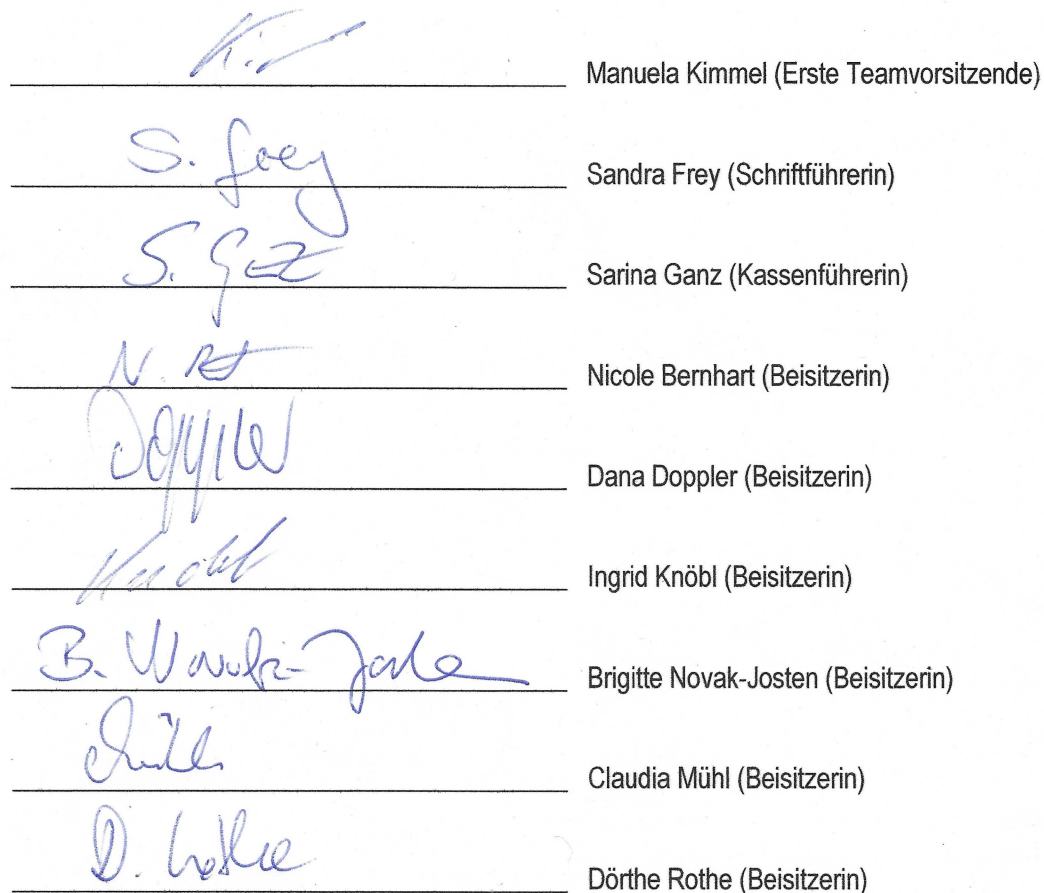 Manuela Kimmel (Erste Teamvorsitzende)
S. Frey Sandra Frey (Schriftführerin)
S. Sarina Ganz (Kassenführerin)
N. Nicole Bernhart (Beisitzerin)
Doppler Dana Doppler (Beisitzerin)
Ingrid Knöbl (Beisitzerin)
B. Novak-Josten Brigitte Novak-Josten (Beisitzerin)
Claudia Mühl (Beisitzerin)
D. Rothe Dörthe Rothe (Beisitzerin)